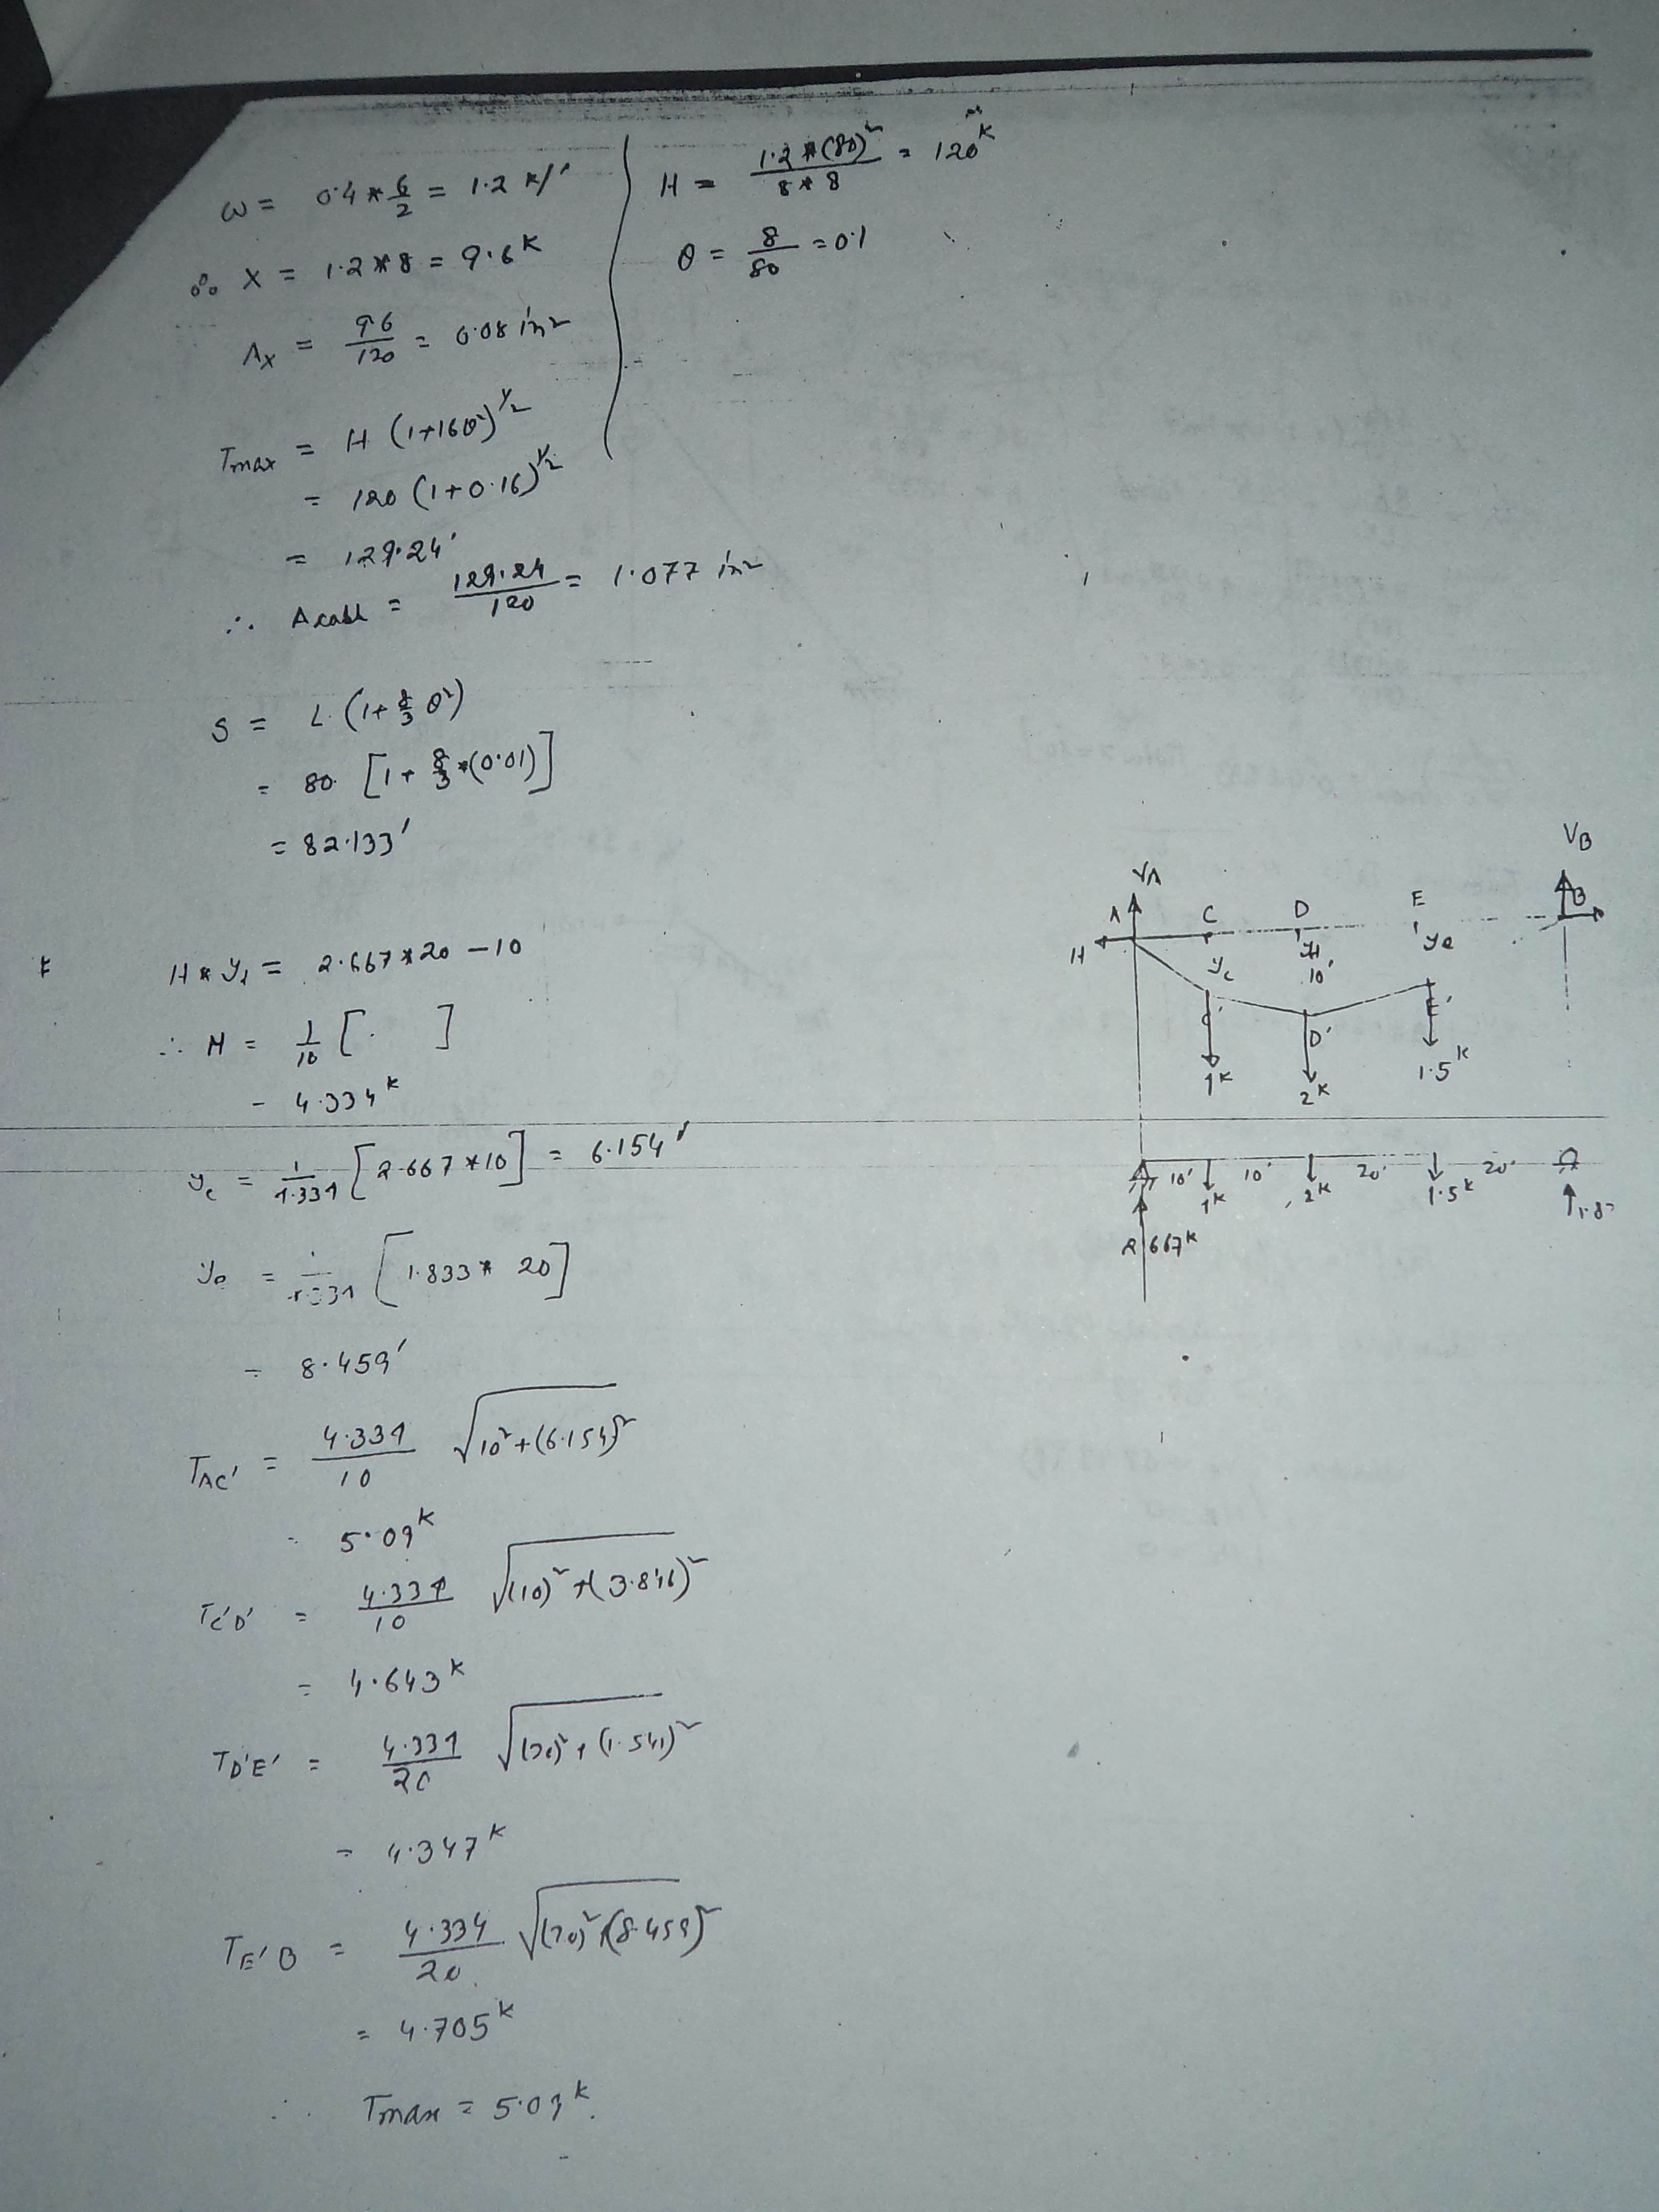 ω = 0.4 * 6/2 = 1.2 k/'
∴ X = 1.2 * 8 = 9.6 K
Ax = 9.6/120 = 0.08 in²
Tmax = H (1+16θ²)^1/2
= 120 (1+0.16)^1/2
= 129.24'
∴ Acabl = 129.24/120 = 1.077 in²
H = 1.2 * (80)²/8 * 8 = 120 K
θ = 8/80 = 0.1
S = L (1+ 8/3 θ²)
= 80 [1+ 8/3 * (0.01)]
= 82.133'
H * y1 = 2.667 * 20 - 10
∴ H = 1/10 [ ]
- 4.334 K
yc = 1/4.334 [2.667 * 10] = 6.154'
ye = 1/4.334 [1.833 * 20]
= 8.459'
TAC' = 4.334/10 √10² + (6.154)²
= 5.09 K
TC'D' = 4.334/10 √(10)² + (3.846)²
= 4.643 K
TD'E' = 4.334/20 √(20)² + (1.541)²
= 4.347 K
TE'B = 4.334/20 √(20)² + (8.459)²
= 4.705 K
∴ Tmax = 5.09 K.
VA
VB
A C D E B
H
yc
10'
ye
C' D' E'
1 K
2 K
1.5 K
10' 10' 20' 20'
1 K 2 K 1.5 K
2.667 K
1.83